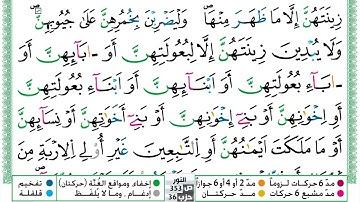 زِينَتَهُنَّ إِلَّا مَا ظَهَرَ مِنْهَا وَلْيَضْرِبْنَ بِخُمُرِهِنَّ عَلَىٰ جُيُوبِهِنَّ
وَلَا يُبْدِينَ زِينَتَهُنَّ إِلَّا لِبُعُولَتِهِنَّ أَوْ ءَابَآئِهِنَّ أَوْ
ءَابَآءِ بُعُولَتِهِنَّ أَوْ أَبْنَآئِهِنَّ أَوْ أَبْنَآءِ بُعُولَتِهِنَّ
أَوْ إِخْوَٰنِهِنَّ أَوْ بَنِيٓ إِخْوَٰنِهِنَّ أَوْ بَنِيٓ أَخَوَٰتِهِنَّ أَوْ نِسَآئِهِنَّ
أَوْ مَا مَلَكَتْ أَيْمَٰنُهُنَّ أَوِ ٱلتَّٰبِعِينَ غَيْرِ أُوْلِي ٱلْإِرْبَةِ مِنَ
مدّ 6 حركات لزوماً مدّ 2 أو 4 أو 6 جوازاً النور إخفاء ومواقع الغُنَّة (حركتان) تفخيم
مدّ مشبع 6 حركات مدّ حركتان ص 353 حزب 36 إدغام . وما لا يُلفظ قلقلة